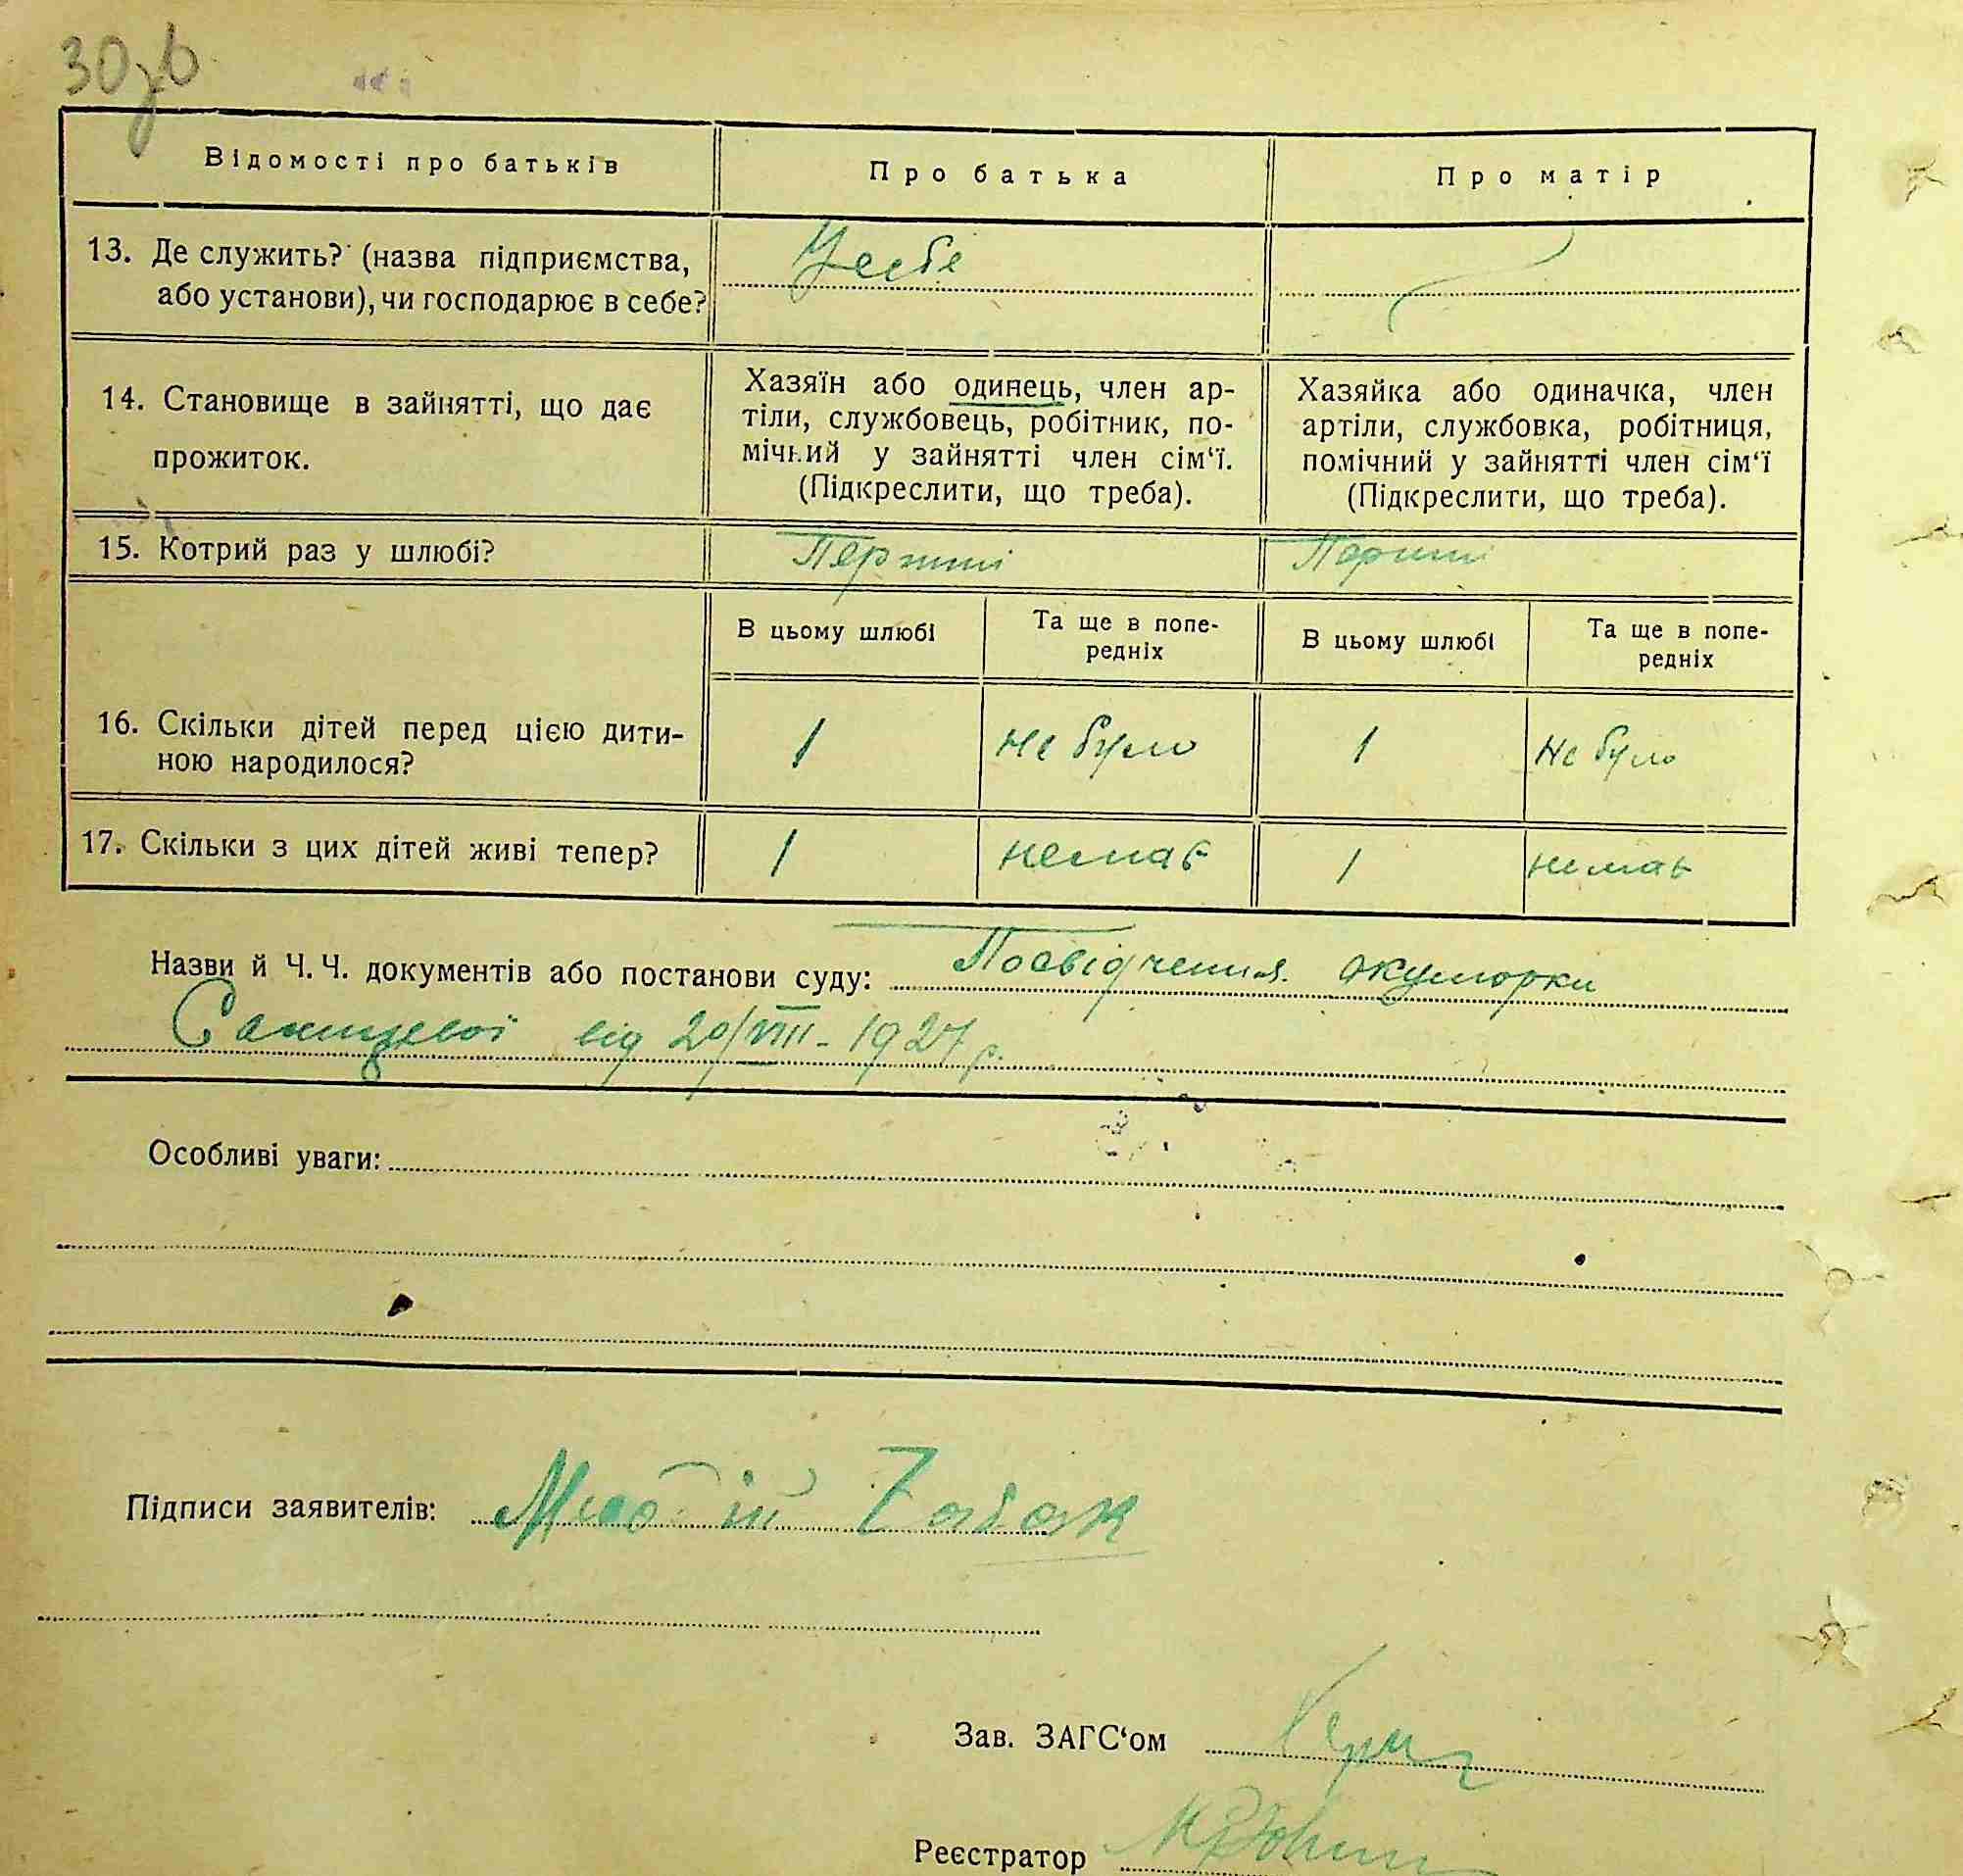 30зв
Відомості про батьків
Про батька
Про матір
13. Де служить? (назва підприємства,
або установи), чи господарює в себе?
У себе
14. Становище в зайнятті, що дає
прожиток.
Хазяїн або одинець, член ар-
тіли, службовець, робітник, по-
мічний у зайнятті член сім‘ї.
(Підкреслити, що треба).
Хазяйка або одиначка, член
артіли, службовка, робітниця,
помічний у зайнятті член сім‘ї
(Підкреслити, що треба).
15. Котрий раз у шлюбі?
Перший
Перший
В цьому шлюбі
Та ще в попе-
редніх
В цьому шлюбі
Та ще в попе-
редніх
16. Скільки дітей перед цією дити-
ною народилося?
1
не було
1
не було
17. Скільки з цих дітей живі тепер?
1
немає
1
немає
Назви й Ч. Ч. документів або постанови суду: Посвідчення акушорки
від 20/VIII - 1927 р.
Особливі уваги:
Підписи заявителів:
Зав. ЗАГС‘ом
Реєстратор